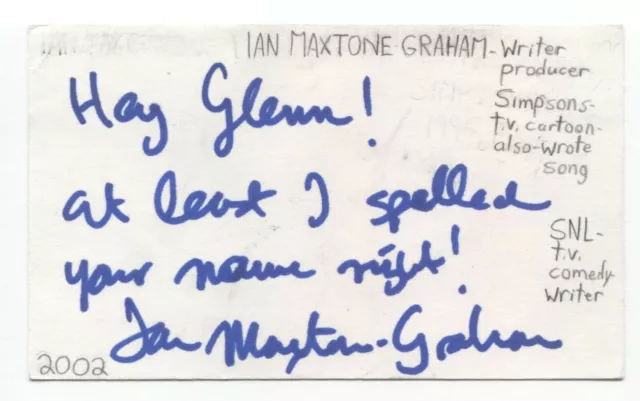 IAN MAXTONE GRAHAM - Writer
producer
Simpsons-
t.v. cartoon-
also-wrote
song
Hay Glenn!
at least I spelled
your name right!
Ian Maxtone-Graham
SNL-
t.v.
comedy
writer
2002